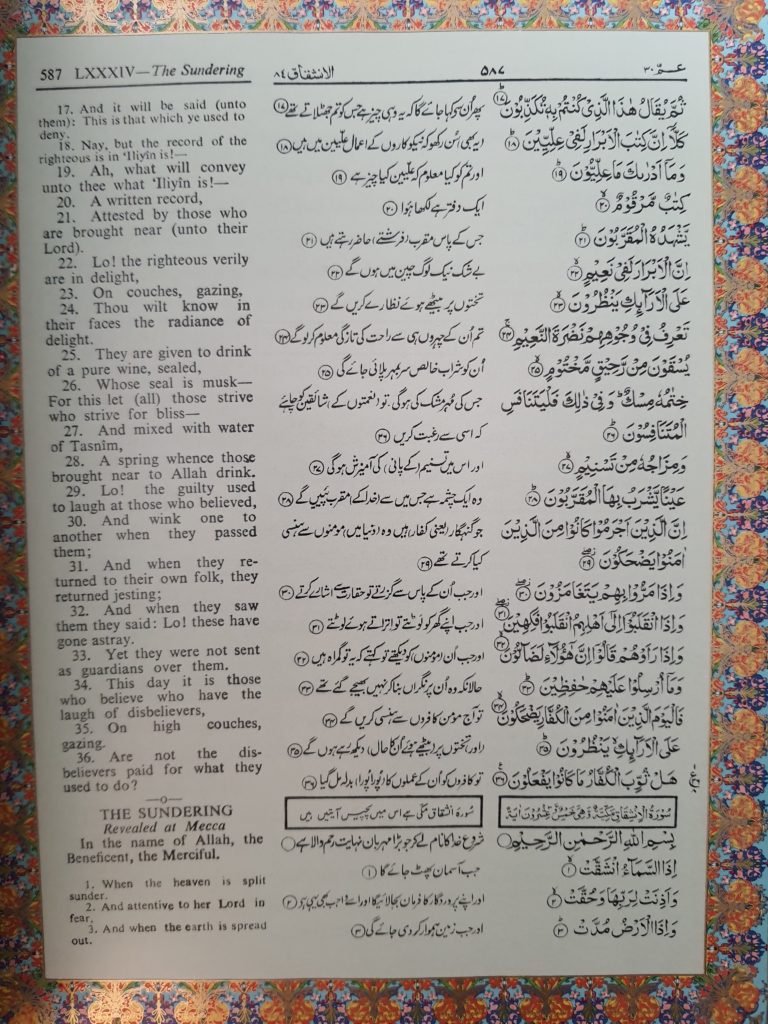 587 LXXXIV—The Sundering
الانشقاق ٨٤
۵۸۷
عـمّ ٣٠
17. And it will be said (unto
them): This is that which ye used to
deny.
18. Nay, but the record of the
righteous is in ‘Iliyîn is!—
19. Ah, what will convey
unto thee what ‘Iliyîn is!—
20. A written record,
21. Attested by those who
are brought near (unto their
Lord).
22. Lo! the righteous verily
are in delight,
23. On couches, gazing,
24. Thou wilt know in
their faces the radiance of
delight.
25. They are given to drink
of a pure wine, sealed,
26. Whose seal is musk—
For this let (all) those strive
who strive for bliss—
27. And mixed with water
of Tasnîm,
28. A spring whence those
brought near to Allah drink.
29. Lo! the guilty used
to laugh at those who believed,
30. And wink one to
another when they passed
them;
31. And when they re-
turned to their own folk, they
returned jesting;
32. And when they saw
them they said: Lo! these have
gone astray.
33. Yet they were not sent
as guardians over them.
34. This day it is those
who believe who have the
laugh of disbelievers,
35. On high couches,
gazing.
36. Are not the dis-
believers paid for what they
used to do?
—o—
THE SUNDERING
Revealed at Mecca
In the name of Allah, the
Beneficent, the Merciful.
1. When the heaven is split
sunder.
2. And attentive to her Lord in
fear,
3. And when the earth is spread
out.
پھر اُن سے کہا جائے گا کہ یہ وہی چیز ہے جس کو تم جھٹلاتے تھے ⑰
یہ بھی سُن رکھو کہ نیکوکاروں کے اعمال علّیین میں ہیں ⑱
اور تم کو کیا معلوم کہ علّیین کیا چیز ہے ⑲
ایک دفتر ہے لکھا ہوا ⑳
جس کے پاس مقرب (فرشتے) حاضر رہتے ہیں ㉑
بے شک نیک لوگ چین میں ہوں گے ㉒
تختوں پر بیٹھے ہوئے نظارے کریں گے ㉓
تم اُن کے چہروں ہی سے راحت کی تازگی معلوم کر لو گے ㉔
اُن کو شراب خالص سربمہر پلائی جائے گی ㉕
جس کی مُہر مشک کی ہوگی۔ تو (نعمتوں کے) شائقین کو چاہئے
کہ اسی سے رغبت کریں ㉖
اور اس میں تسنیم (کے پانی) کی آمیزش ہوگی ㉗
وہ ایک چشمہ ہے جس میں سے (خدا کے) مقرب پئیں گے ㉘
جو گنہگار (یعنی کفار) ہیں وہ (دنیا میں) مومنوں سے ہنسی
کیا کرتے تھے ㉙
اور جب اُن کے پاس سے گزرتے تو حقارت سے اشارے کرتے ㉚
اور جب اپنے گھر کو لوٹتے تو اِتراتے ہوئے لوٹتے ㉛
اور جب اُن (مومنوں) کو دیکھتے تو کہتے کہ یہ تو گمراہ ہیں ㉜
حالانکہ وہ اُن پر نگراں بنا کر نہیں بھیجے گئے تھے ㉝
تو آج مومن کافروں سے ہنسی کریں گے ㉞
(اور) تختوں پر (بیٹھے ہوئے اُن کا حال) دیکھ رہے ہوں گے ㉟
تو کافروں کو اُن کے عملوں کا (پورا پورا) بدلہ مل گیا ㊱
سُورۂ انشقاق مکّی ہے اس میں پچیس آیتیں ہیں
شروع خدا کا نام لے کر جو بڑا مہربان نہایت رحم والا ہے
جب آسمان پھٹ جائے گا ①
اور اپنے پروردگار کا فرمان بجا لائے گا اور اسے واجب بھی یہی ہے ②
اور جب زمین ہموار کر دی جائے گی ③
ثُمَّ يُقَالُ هٰذَا الَّذِىْ كُنْتُمْ بِهٖ تُكَذِّبُوْنَ ⑰
كَلَّاۤ اِنَّ كِتٰبَ الْاَبْرَارِ لَفِىْ عِلِّيِّيْنَ ⑱
وَمَاۤ اَدْرٰىكَ مَا عِلِّيُّوْنَ ⑲
كِتٰبٌ مَّرْقُوْمٌ ⑳
يَّشْهَدُهُ الْمُقَرَّبُوْنَ ㉑
اِنَّ الْاَبْرَارَ لَفِىْ نَعِيْمٍ ㉒
عَلَى الْاَرَآئِكِ يَنْظُرُوْنَ ㉓
تَعْرِفُ فِىْ وُجُوْهِهِمْ نَضْرَةَ النَّعِيْمِ ㉔
يُسْقَوْنَ مِنْ رَّحِيْقٍ مَّخْتُوْمٍ ㉕
خِتٰمُهٗ مِسْكٌ وَفِىْ ذٰلِكَ فَلْيَتَنَافَسِ
الْمُتَنَافِسُوْنَ ㉖
وَمِزَاجُهٗ مِنْ تَسْنِيْمٍ ㉗
عَيْنًا يَّشْرَبُ بِهَا الْمُقَرَّبُوْنَ ㉘
اِنَّ الَّذِيْنَ اَجْرَمُوْا كَانُوْا مِنَ الَّذِيْنَ
اٰمَنُوْا يَضْحَكُوْنَ ㉙
وَاِذَا مَرُّوْا بِهِمْ يَتَغَامَزُوْنَ ㉚
وَاِذَا انْقَلَبُوْۤا اِلٰٓى اَهْلِهِمُ انْقَلَبُوْا فَكِهِيْنَ ㉛
وَاِذَا رَاَوْهُمْ قَالُوْۤا اِنَّ هٰٓؤُلَآءِ لَضَآلُّوْنَ ㉜
وَمَاۤ اُرْسِلُوْا عَلَيْهِمْ حٰفِظِيْنَ ㉝
فَالْيَوْمَ الَّذِيْنَ اٰمَنُوْا مِنَ الْكُفَّارِ يَضْحَكُوْنَ ㉞
عَلَى الْاَرَآئِكِ يَنْظُرُوْنَ ㉟
هَلْ ثُوِّبَ الْكُفَّارُ مَا كَانُوْا يَفْعَلُوْنَ ㊱
سُوْرَةُ الْاِنْشِقَاقِ مَكِّيَّةٌ وَّهِىَ خَمْسٌ وَّعِشْرُوْنَ اٰيَةً
بِسْمِ اللهِ الرَّحْمٰنِ الرَّحِيْمِ
اِذَا السَّمَآءُ انْشَقَّتْ ①
وَاَذِنَتْ لِرَبِّهَا وَحُقَّتْ ②
وَاِذَا الْاَرْضُ مُدَّتْ ③